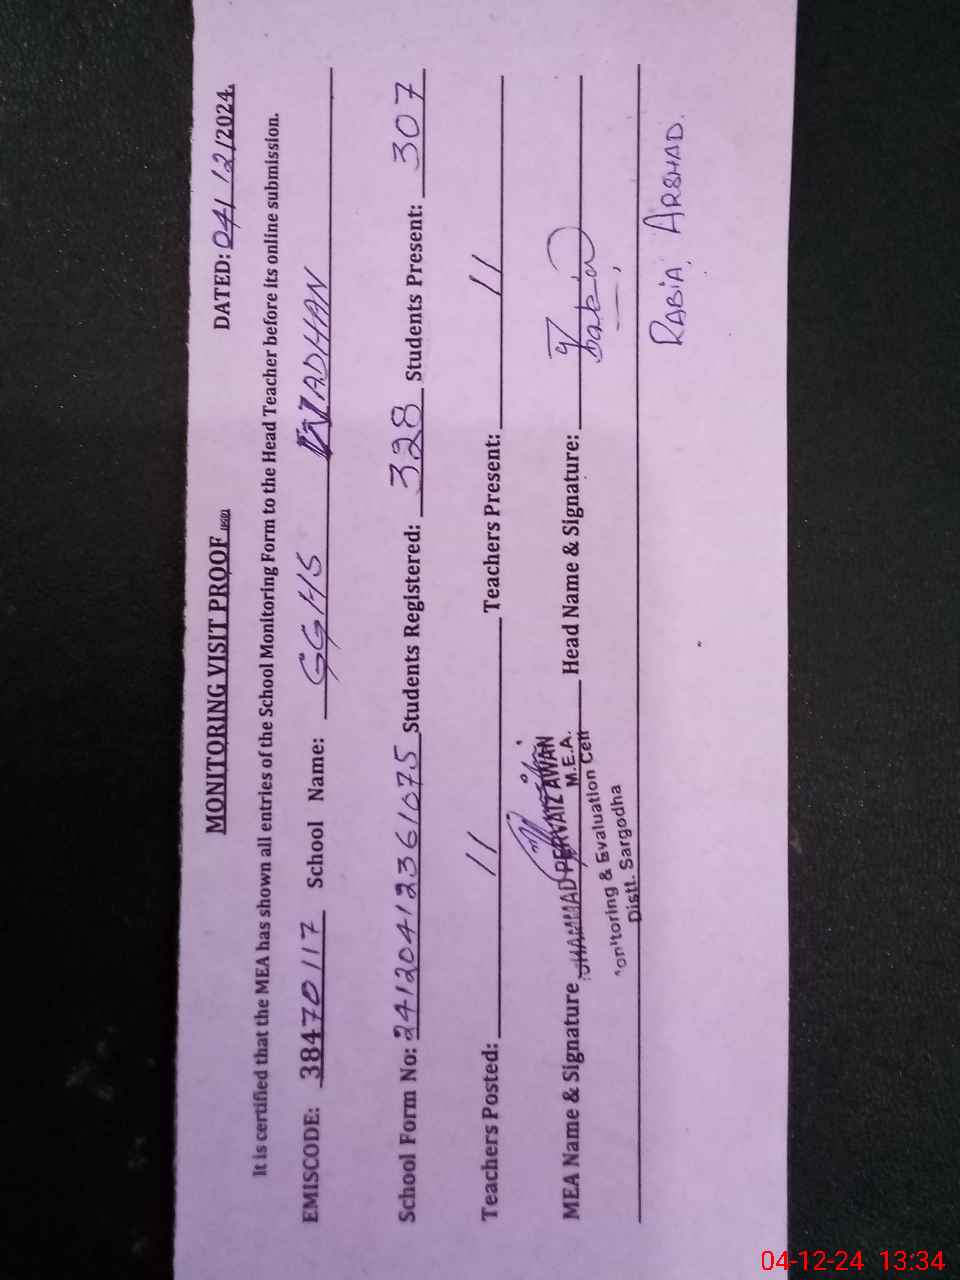 MONITORING VISIT PROOF
DATED: 04/12/2024.
It is certified that the MEA has shown all entries of the School Monitoring Form to the Head Teacher before its online submission.
EMISCODE: 38470117 School Name: GGHS WADHAN
School Form No: 2412041236 1075 Students Registered: 328 Students Present: 307
Teachers Posted: 11 Teachers Present: 11
MEA Name & Signature Head Name & Signature:
PERVAIZ AWAN
M.E.A.
& Evaluation Cell
Distt. Sargodha
RABIA ARSHAD.
04-12-24 13:34